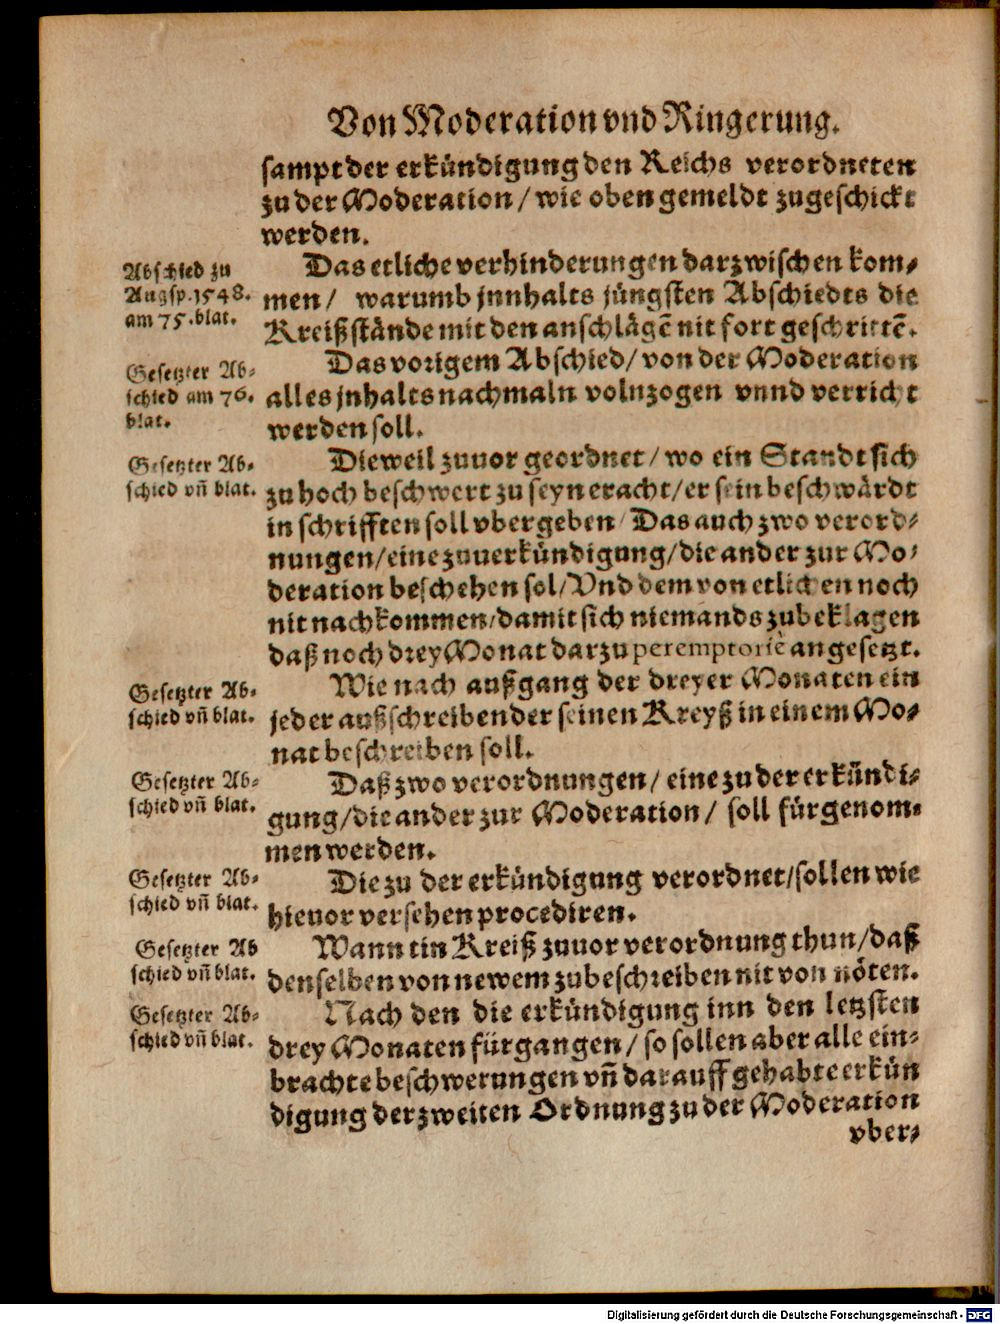 Von Moderation vnd Ringerung.
sampt der erkündigung den Reichs verordneten
zu der Moderation / wie oben gemeldt zugeschickt
werden.
Abschied zu
Augsp. 1548.
am 75. blat.
Das etliche verhinderungen darzwischen kom-
men / warumb jnnhalts jüngsten Abschiedts die
Kreißstände mit den anschlägẽ nit fort geschrittẽ.
Gesetzter Ab-
schied am 76.
blat.
Das vorigem Abschied / von der Moderation
alles jnhalts nachmaln volnzogen vnnd verricht
werden soll.
Gesetzter Ab-
schied vñ blat.
Dieweil zuuor geordnet / wo ein Standt sich
zu hoch beschwert zu seyn eracht / er sein beschwärdt
in schrifften soll vbergeben / Das auch zwo verord-
nungen / eine zuuerkündigung / die ander zur Mo-
deration beschehen sol / Vnd dem von etlichen noch
nit nachkommen / damit sich niemands zubeklagen
daß noch drey Monat darzu peremptoriè angesetzt.
Gesetzter Ab-
schied vñ blat.
Wie nach außgang der dreyer Monaten ein
jeder außschreibender seinen Kreyß in einem Mo-
nat beschreiben soll.
Gesetzter Ab-
schied vñ blat.
Daß zwo verordnungen / eine zu der erkündi-
gung / die ander zur Moderation / soll fürgenom-
men werden.
Gesetzter Ab-
schied vñ blat.
Die zu der erkündigung verordnet / sollen wie
hieuor versehen procediren.
Gesetzter Ab
schied vñ blat.
Wann tin Kreiß zuuor verordnung thun / daß
denselben von newem zubeschreiben nit von nöten.
Gesetzter Ab-
schied vñ blat.
Nach den die erkündigung inn den letzsten
drey Monaten fürgangen / so sollen aber alle ein-
brachte beschwerungen vñ darauff gehabte erkün
digung der zweiten Ordnung zu der Moderation
vber-
Digitalisierung gefördert durch die Deutsche Forschungsgemeinschaft - DFG